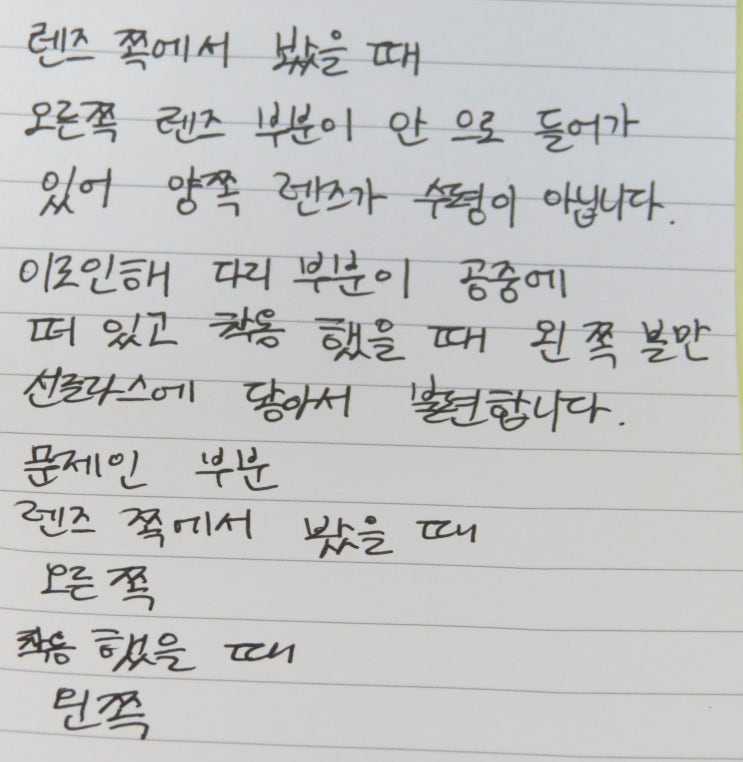 렌즈 쪽에서 봤을 때
오른쪽 렌즈 부분이 안 으로 들어가
있어 양쪽 렌즈가 수평이 아닙니다.
이로인해 다리 부분이 공중에
떠 있고 착용 했을 때 왼쪽 볼만
선글라스에 닿아서 불편합니다.
문제인 부분
렌즈 쪽에서 봤을 때
오른쪽
착용 했을 때
왼쪽